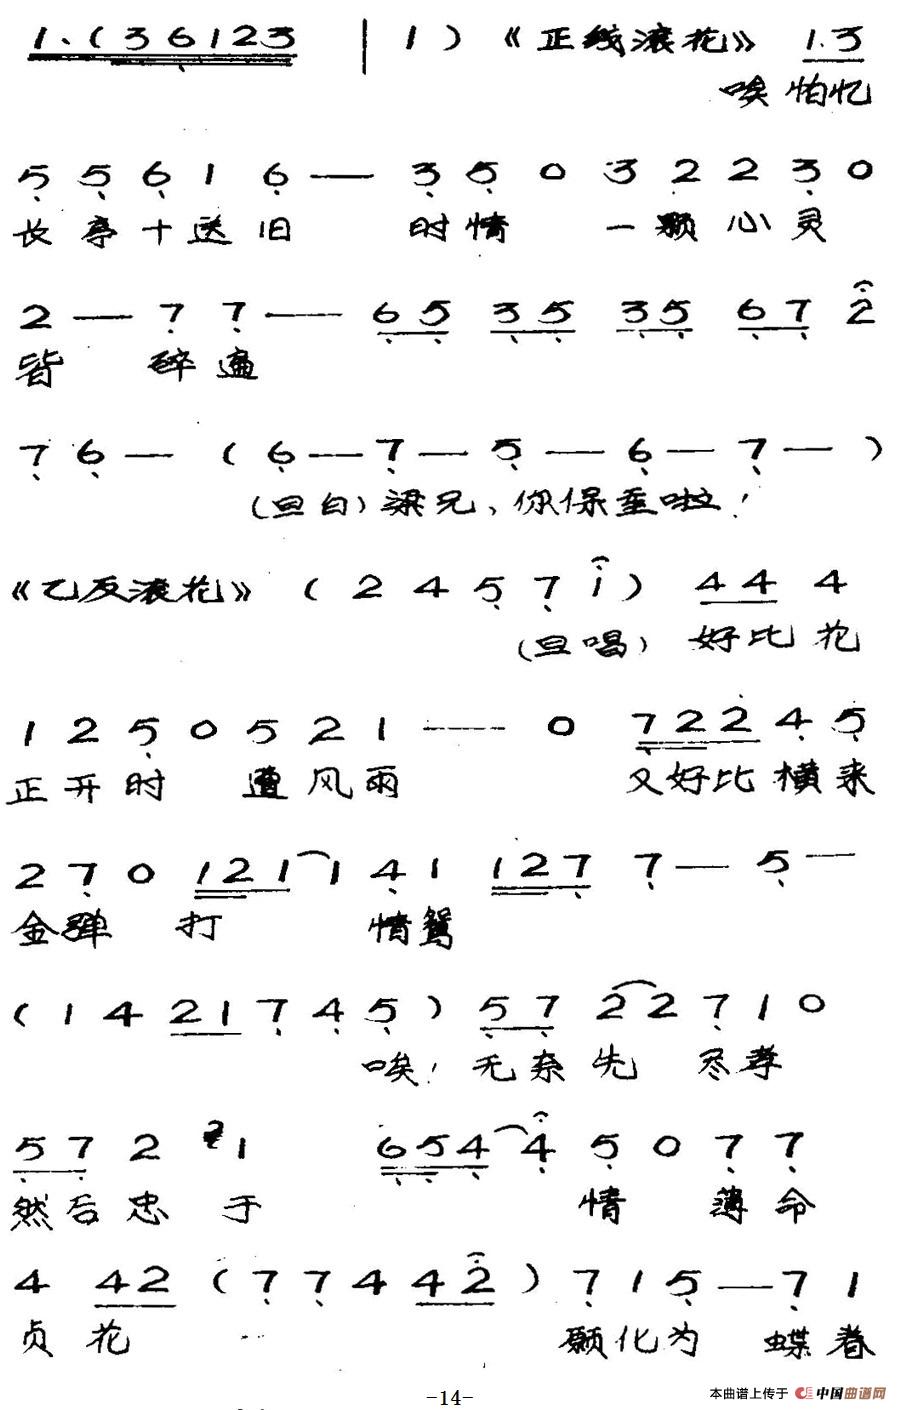 1.(36123 | 1)《正线滚花》1.3
唉 怕忆
5 5 6 1 6 — 3 5 0 3 2 2 3 0
长亭十送旧 时情 一颗心灵
2 — 7 7 — 65 35 35 67 2
皆 碎遍
7 6 — ( 6 — 7 — 5 — 6 — 7 — )
(旦白)梁兄、你保重啦!
《乙反滚花》( 2 4 5 7 i ) 44 4
(旦唱) 好比 花
1 2 5 0 5 2 1 — 0 722 4 5
正开时 遭风雨 又好比横来
2 7 0 121 1 4 1 127 7 — 5 —
金弹 打 情鸳
( 1 4 21 7 4 5 ) 57 2 2 7 1 0
唉! 无奈先 尽孝
57 2 2 1 654 4 5 0 7 7
然后忠于 情 薄命
4 42 ( 7 7 4 42 ) 7 1 5 — 7 1
贞花 愿化为 蝶眷
-14-
本曲谱上传于 中国曲谱网